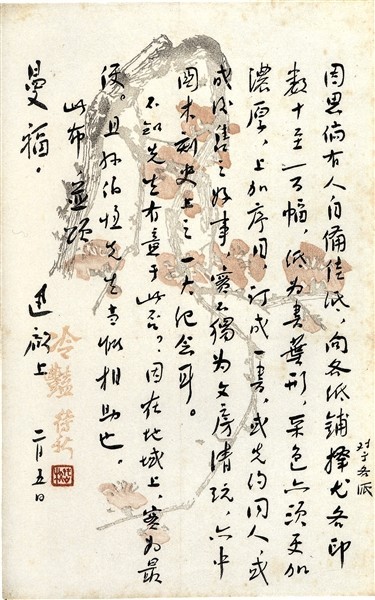 因思倘有人自備佳纸,向各纸鋪擇尤各印
对于各派
数十至一百幅,纸为書葉形,采色亦須更加
濃厚,上加序目,訂成一書,或先约同人,或
成後售之好事,實不獨为文房清玩,亦中
國木刻史上之一大纪念耳。
不知先生有意于此否?因在地域上,實为最
便。且孙伯恒先生當能相助也。
此布,並颂
曼福。
迅 啟上 二月五日
冷艷 待秋